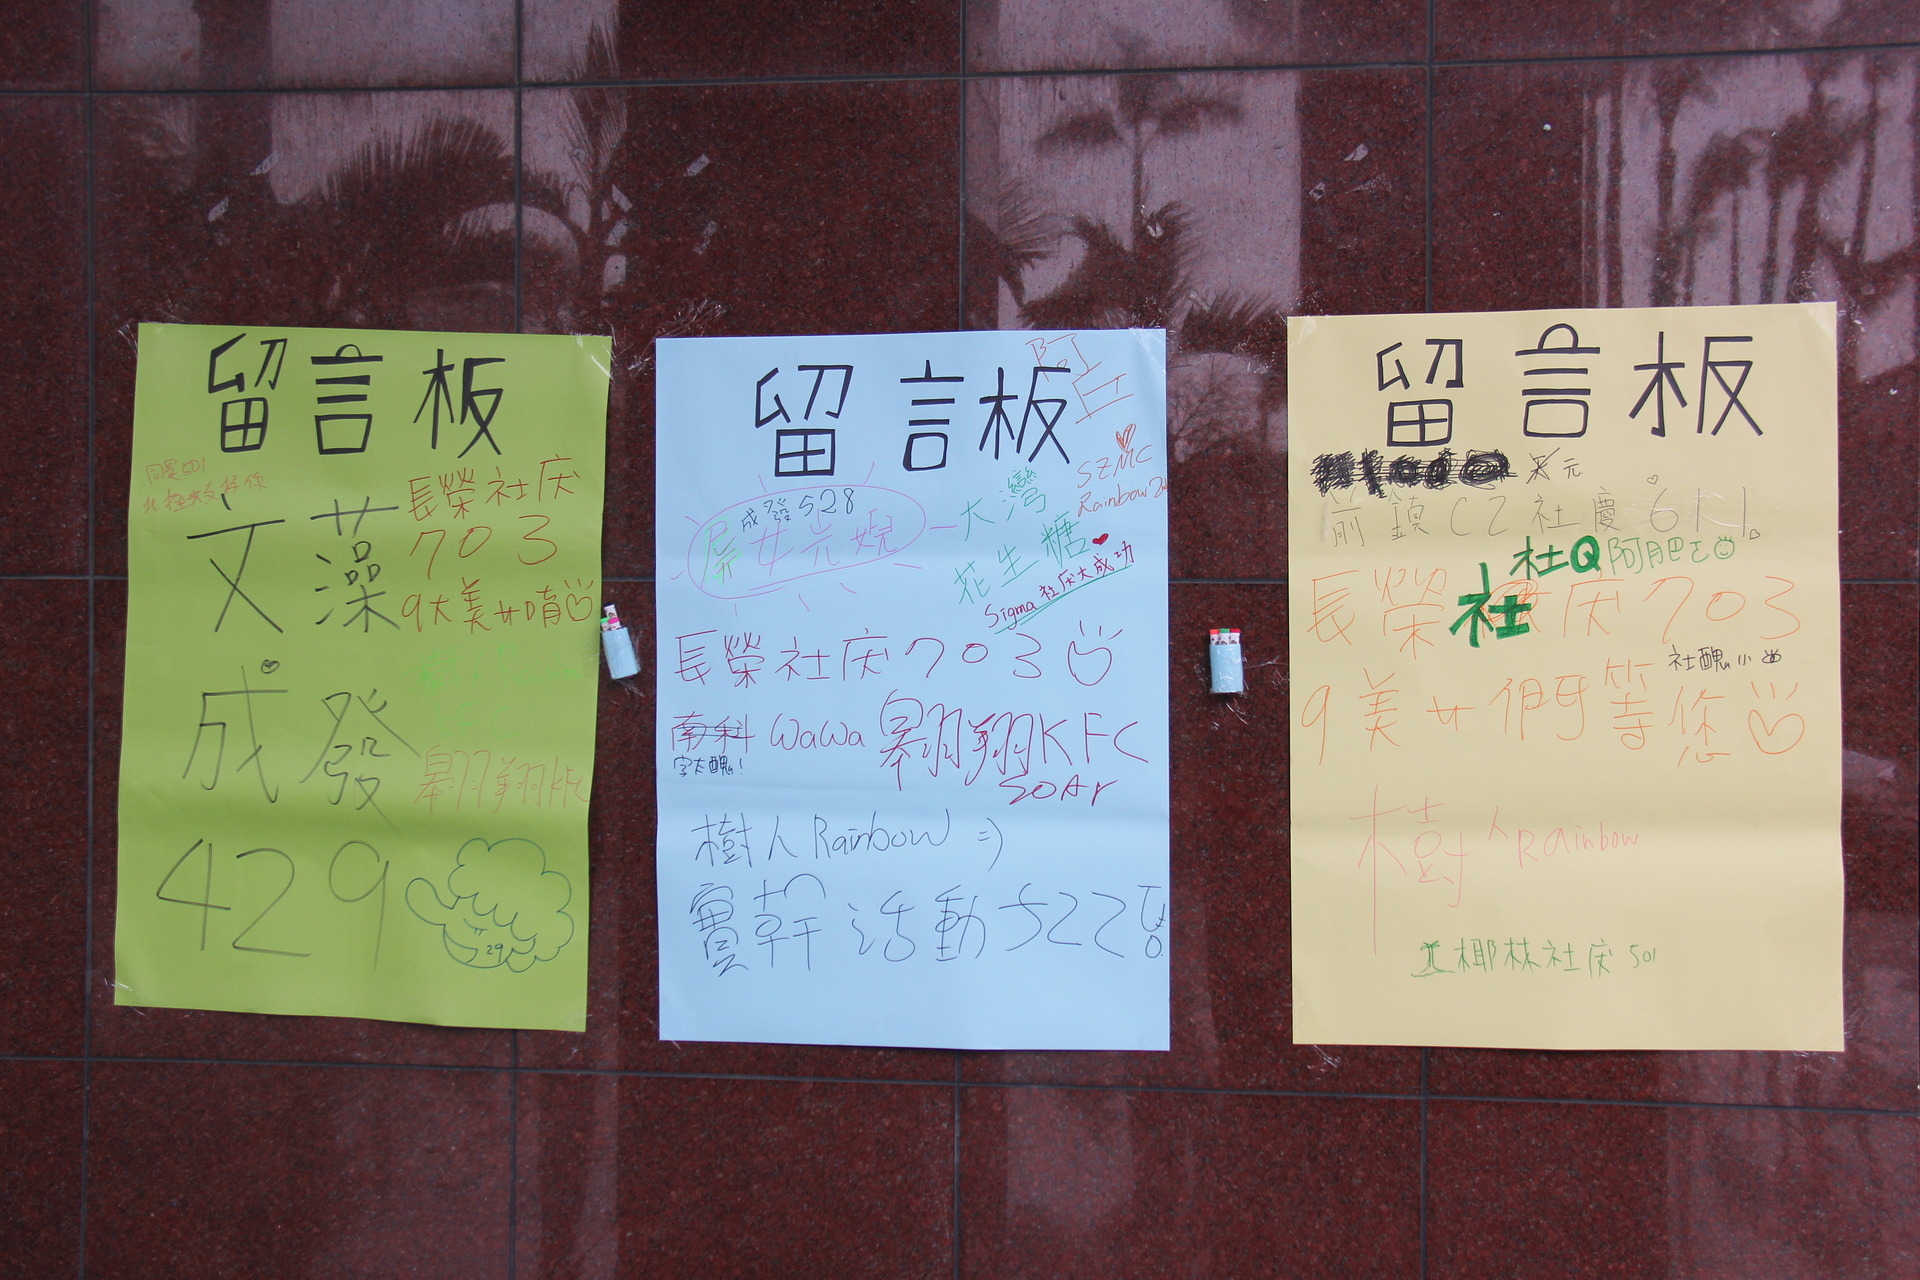 留言板
同是501
文藻
長榮社庆
703
9大美女唷
成發
翱翔KFC
429
29
留言板
阿
SZMC
Rainbow
成發528
屏女元
大灣
花生糖
Sigma社庆大成功
長榮社庆703
南科 WaWa 翱翔KFC
字太醜!
SOAr
樹人 Rainbow =)
活動522
留言板
元
前鎮CZ社慶611
社Q阿肥
長榮社庆703
社
社醜小
9美女們等您
樹人Rainbow
椰林社庆501